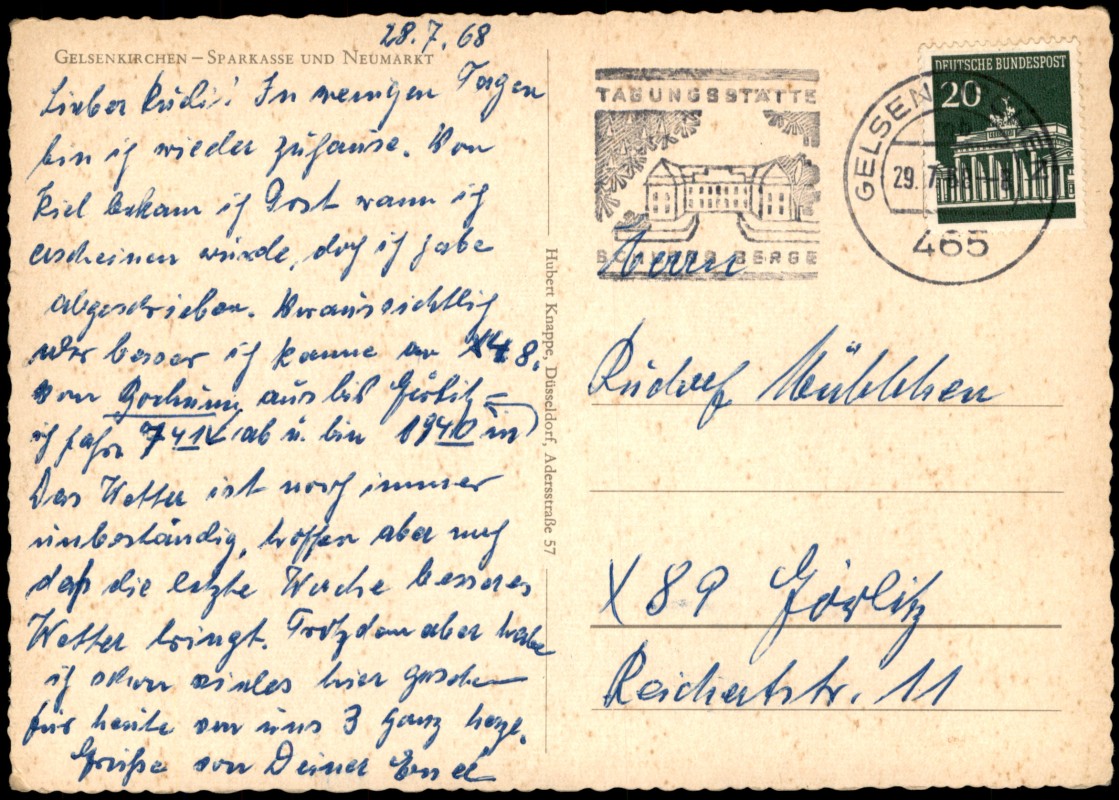 28.7.68
GELSENKIRCHEN – SPARKASSE UND NEUMARKT
Lieber Rudi! In wenigen Tagen
bin ich wieder zuhause. Von
Kiel bekam ich Post wann ich
erscheinen würde, doch ich habe
abgeschrieben. Voraussichtlich
oder besser ich komme am 8.
von Bochum aus bis Görlitz
ich fahre 7 41 ab u. bin 19 40 in
Das Wetter ist noch immer
unbeständig, hoffen aber noch
daß die letzte Woche besseres
Wetter bringt. Trotzdem aber habe
ich schon vieles hier gesehen
für heute von uns 3 ganz herzl.
Grüße von Deiner
Hubert Knappe, Düsseldorf, Adersstraße 57
TAGUNGSSTÄTTE
BERGE
GELSENKIRCHEN
29.7.68
465
DEUTSCHE BUNDESPOST
20
Herrn
Rudolf
X 89 Görlitz
Reichertstr. 11